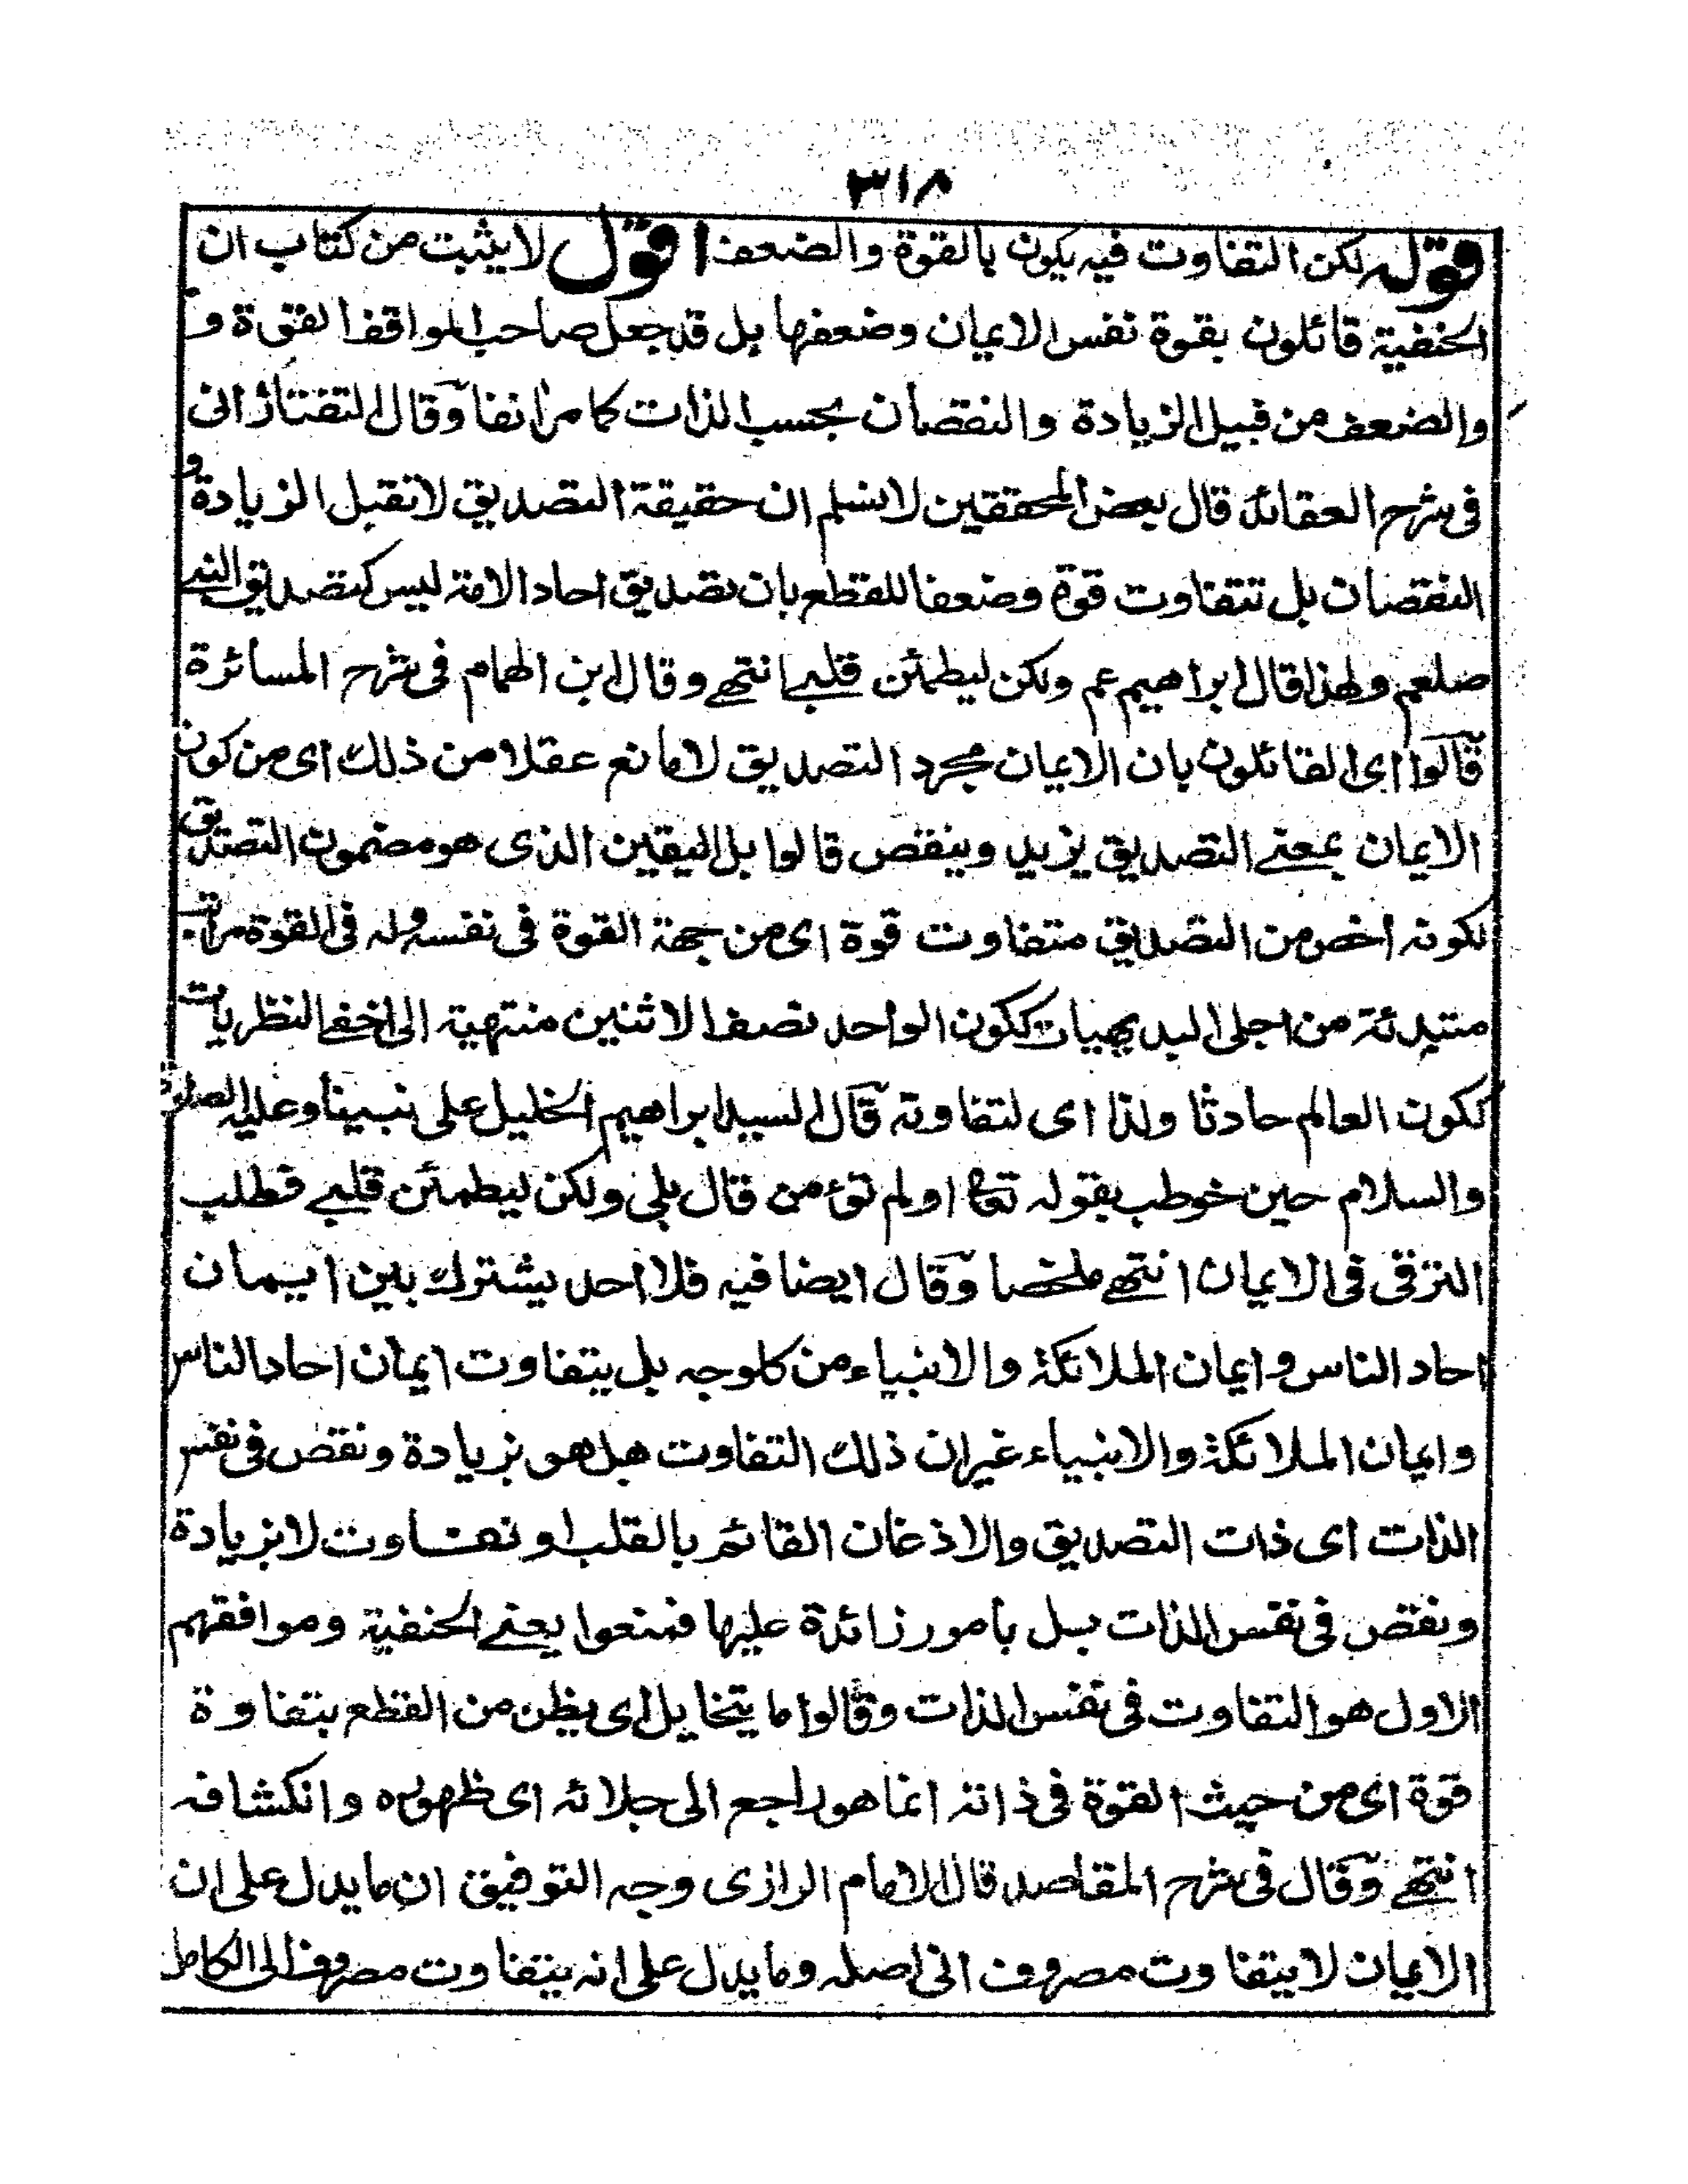 ٣١٨
قوله لكن التفاوت فيه يكون بالقوة والضعف اقول لا يثبت من كتاب ان
الحنفية قائلون بقوة نفس الايمان وضعفها بل قد جعل صاحب المواقف القوة و
والضعف من قبيل الزيادة والنقصان بحسب الذات كما مر انفا وقال التفتازانى
فى شرح العقائد قال بعض المحققين لا نسلم ان حقيقة التصديق لا تقبل الزيادة و
النقصان بل تتفاوت قوة وضعفا للقطع بان تصديق احاد الامة ليس كتصديق النبے
صلعم ولهذا قال ابراهيم عم ولكن ليطمئن قلبے انتهے وقال ابن الهمام فى شرح المسائرة
قالوا اى القائلون بان الايمان مجرد التصديق لا مانع عقلا من ذلك اى من كون
الايمان بمعنے التصديق يزيد وينقص قالوا بل اليقين الذى هو مضمون التصديق
لكونه اخص من التصديق متفاوت قوة اى من جهة القوة فى نفسه وله فى القوة مراتب
مبتدئة من اجلى البديهيات ككون الواحد نصف الاثنين منتهية الى اخفے النظريات
ككون العالم حادثا ولذا اى لتفاوته قال السيد ابراهيم الخليل على نبينا وعليه الصلوة
والسلام حين خوطب بقوله تعا اولم تؤمن قال بلى ولكن ليطمئن قلبے فطلب
الترقى فى الايمان انتهے ملخصا وقال ايضا فيه فلا احد يشترك بين ايمان
احاد الناس و ايمان الملائكة والانبياء من كل وجه بل يتفاوت ايمان احاد الناس
وايمان الملائكة والانبياء غير ان ذلك التفاوت هل هو بزيادة ونقص فى نفس
الذات اى ذات التصديق والاذعان القائم بالقلب او تفاوت لا بزيادة
ونقص فى نفس الذات بل بأمور زائدة عليها فمنعوا يعنے الحنفية وموافقهم
الاول هو التفاوت فى نفس الذات وقالوا ما يتخايل اى يظن من القطع بتفاوة
قوة اى من حيث القوة فى ذاته انما هو راجع الى جلائه اى ظهوره وانكشافه
انتهے وقال فى شرح المقاصد قال الامام الرازى وجه التوفيق ان ما يدل على ان
الايمان لا يتفاوت مصروف الى اصله وما يدل على انه يتفاوت مصروف الى الكامل